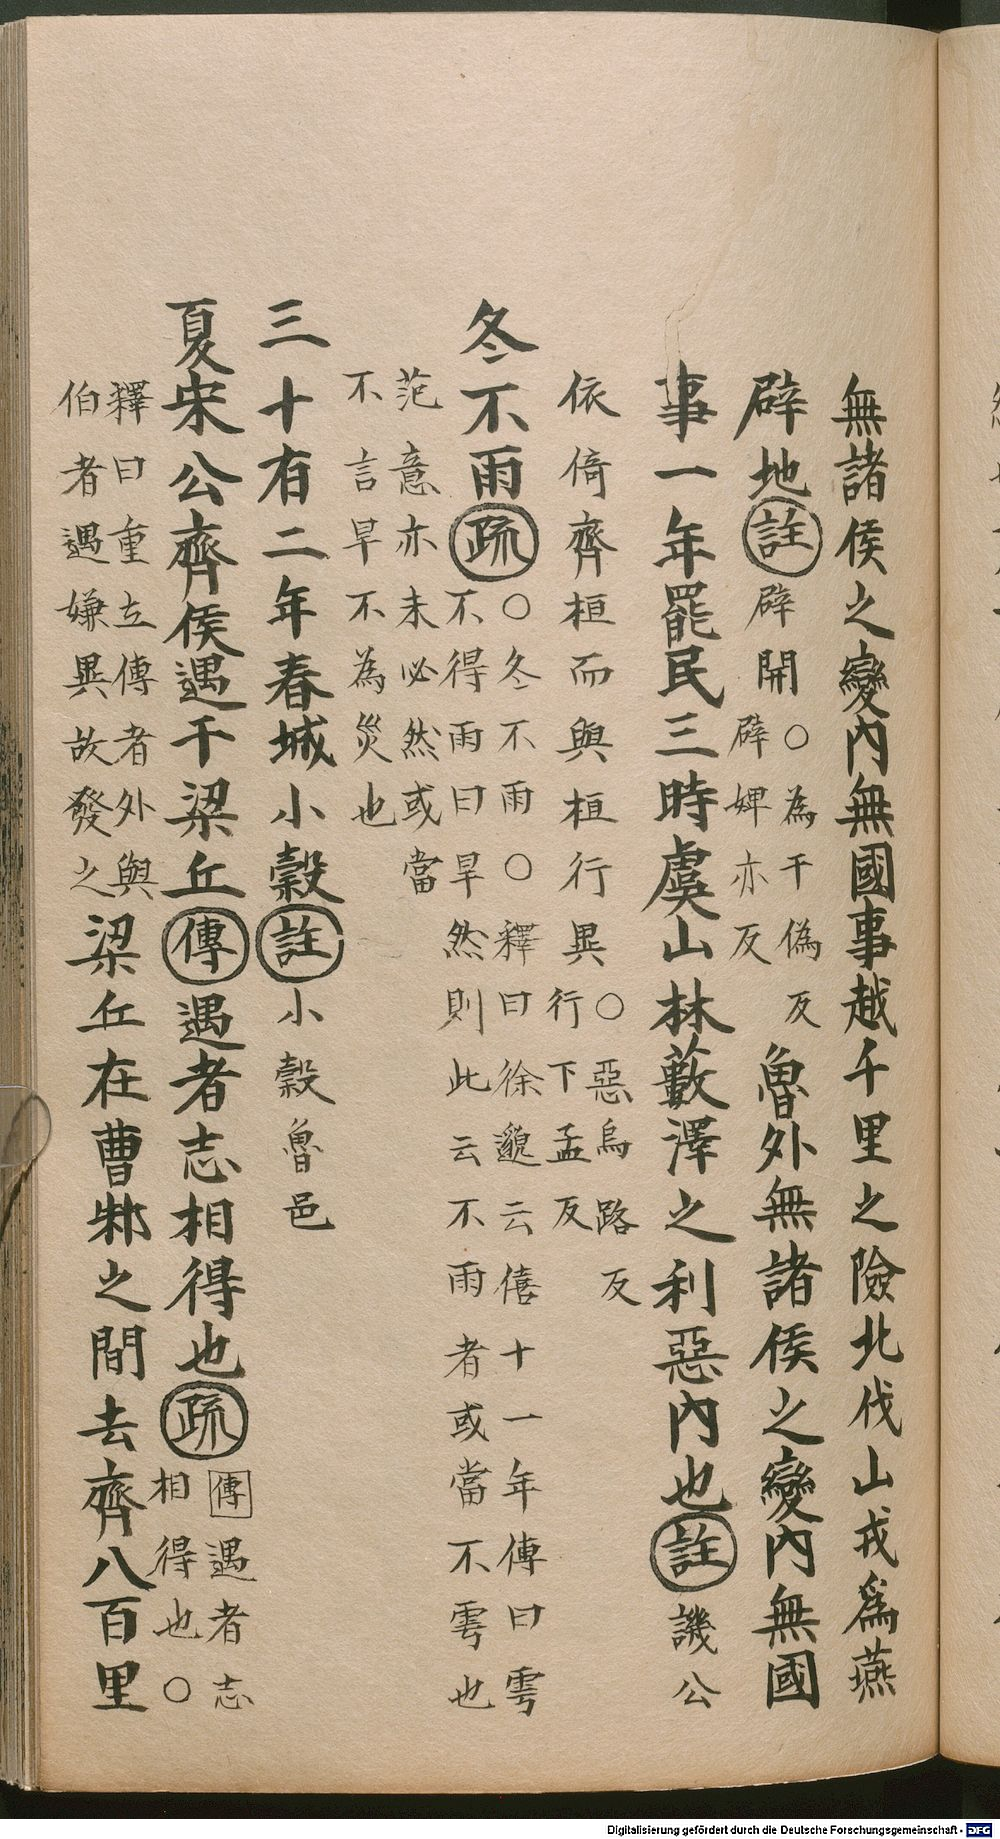 無諸侯之變內無國事越千里之險北伐山戎爲燕
辟地註辟開○為于偽反
辟婢亦反
魯外無諸侯之變內無國
事一年罷民三時虞山林藪澤之利惡內也註譏公
依倚齊桓而與桓行異○惡烏路反
行下孟反
冬不雨疏○冬不雨○釋曰徐邈云僖十一年傳曰雩
不得雨曰旱然則此云不雨者或當不雩也
范意亦未必然或當
不言旱不為災也
三十有二年春城小穀註小穀魯邑
夏宋公齊侯遇于梁丘傳遇者志相得也疏傳遇者志
相得也○
釋曰重立傳者外與
伯者遇嫌異故發之
梁丘在曹邾之間去齊八百里
Digitalisierung gefördert durch die Deutsche Forschungsgemeinschaft - DFG